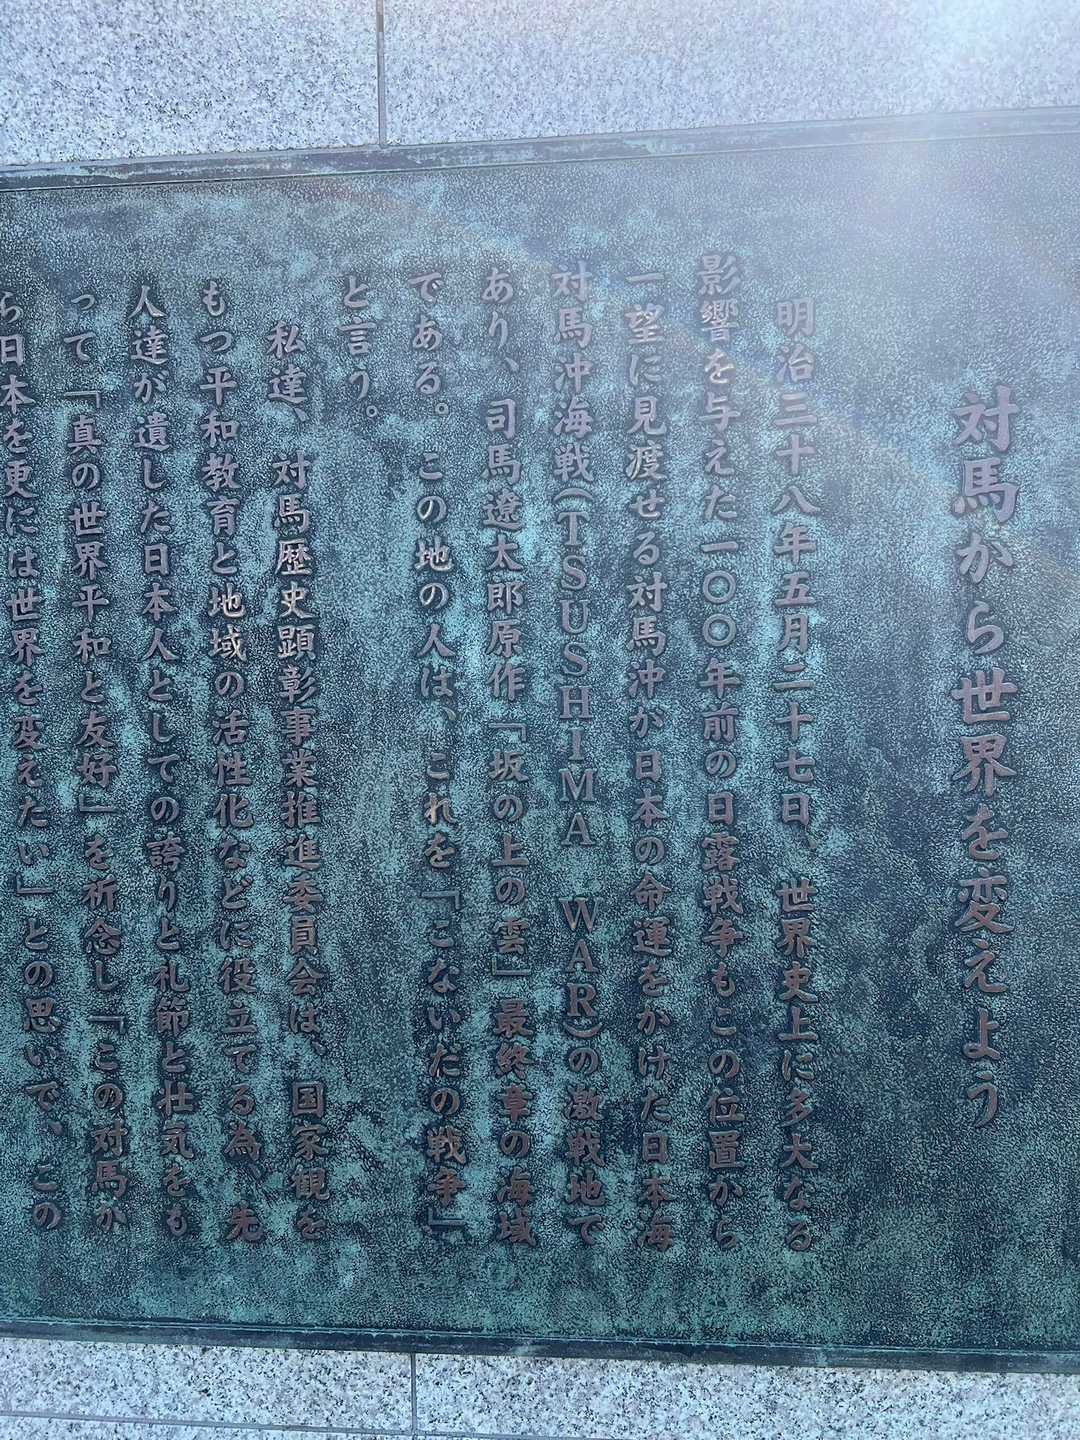 対馬から世界を変えよう
明治三十八年五月二十七日、世界史上に多大なる
影響を与えた一〇〇年前の日露戦争もこの位置から
一望に見渡せる対馬沖が日本の命運をかけた日本海
対馬沖海戦(TSUSHIMA WAR)の激戦地で
あり、司馬遼太郎原作「坂の上の雲」最終章の海域
である。この地の人は、これを「こないだの戦争」
と言う。
私達、対馬歴史顕彰事業推進委員会は、国家観を
もつ平和教育と地域の活性化などに役立てる為、先
人達が遺した日本人としての誇りと礼節と壮気をも
って「真の世界平和と友好」を祈念し「この対馬か
ら日本を更には世界を変えたい」との思いで、この